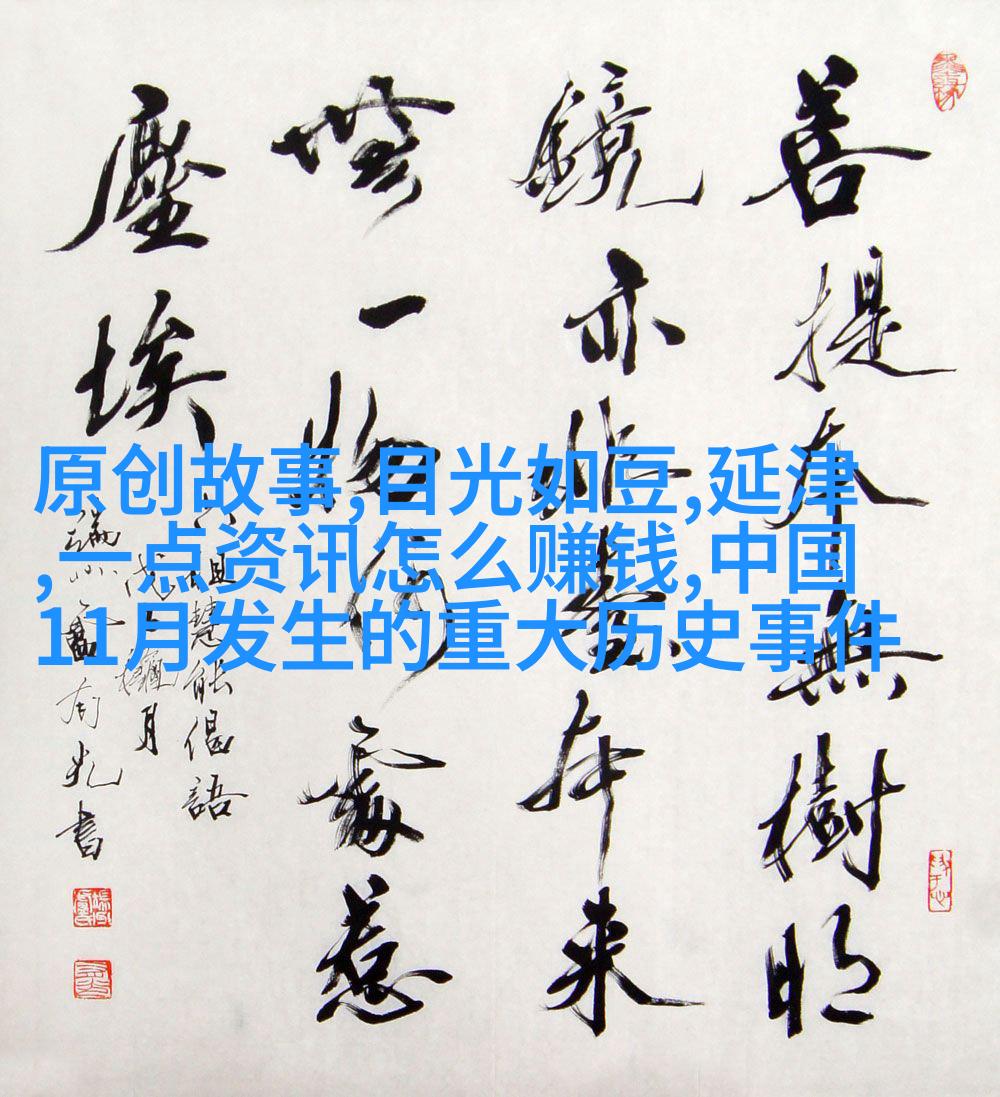 菩提本無樹明
鏡亦非臺本來
無一物何處惹
塵埃
六祖慧能偈語
原创故事,目光如豆,延津
,一点资讯怎么赚钱,中国
11月发生的重大历史事件